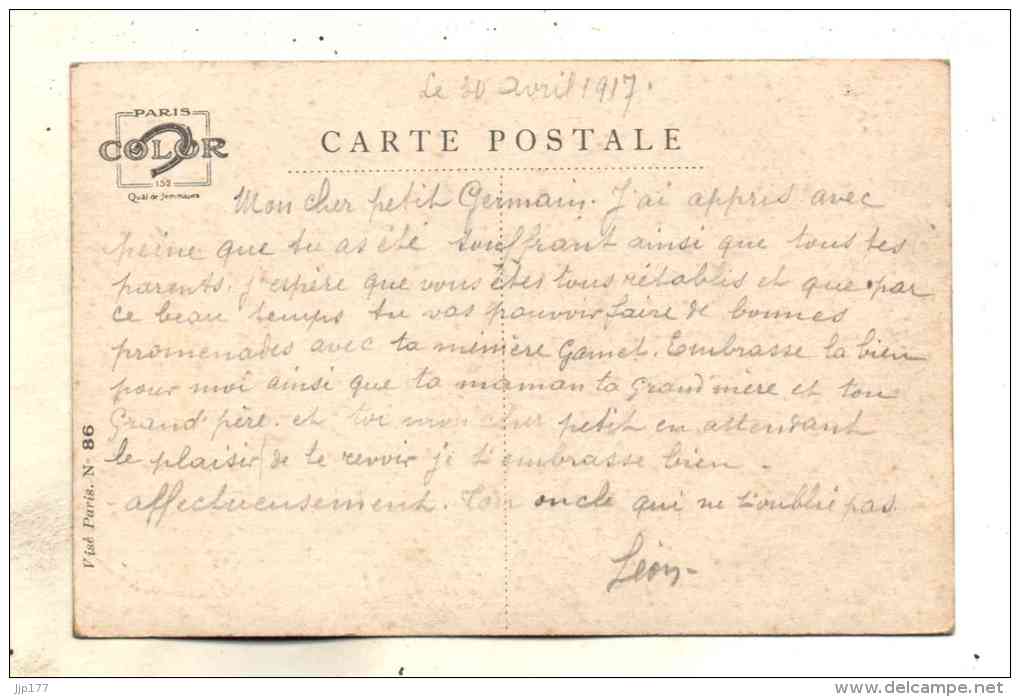 Le 30 avril 1917.
PARIS
COLOR
152
Quai de Jemmapes
CARTE POSTALE
Mon cher petit Germain. J'ai appris avec
peine que tu as été souffrant ainsi que tous tes
parents. j'espère que vous êtes tous rétablis et que par
ce beau temps tu vas pouvoir faire de bonnes
promenades avec ta mémère Gamet. Embrasse la bien
pour moi ainsi que ta maman ta Grand'mère et ton
Grand'père. et toi mon cher petit en attendant
le plaisir de te revoir je t'embrasse bien
affectueusement. Ton oncle qui ne t'oublie pas.
Léon
Visé Paris. N° 86
jjp177
delcampe.net